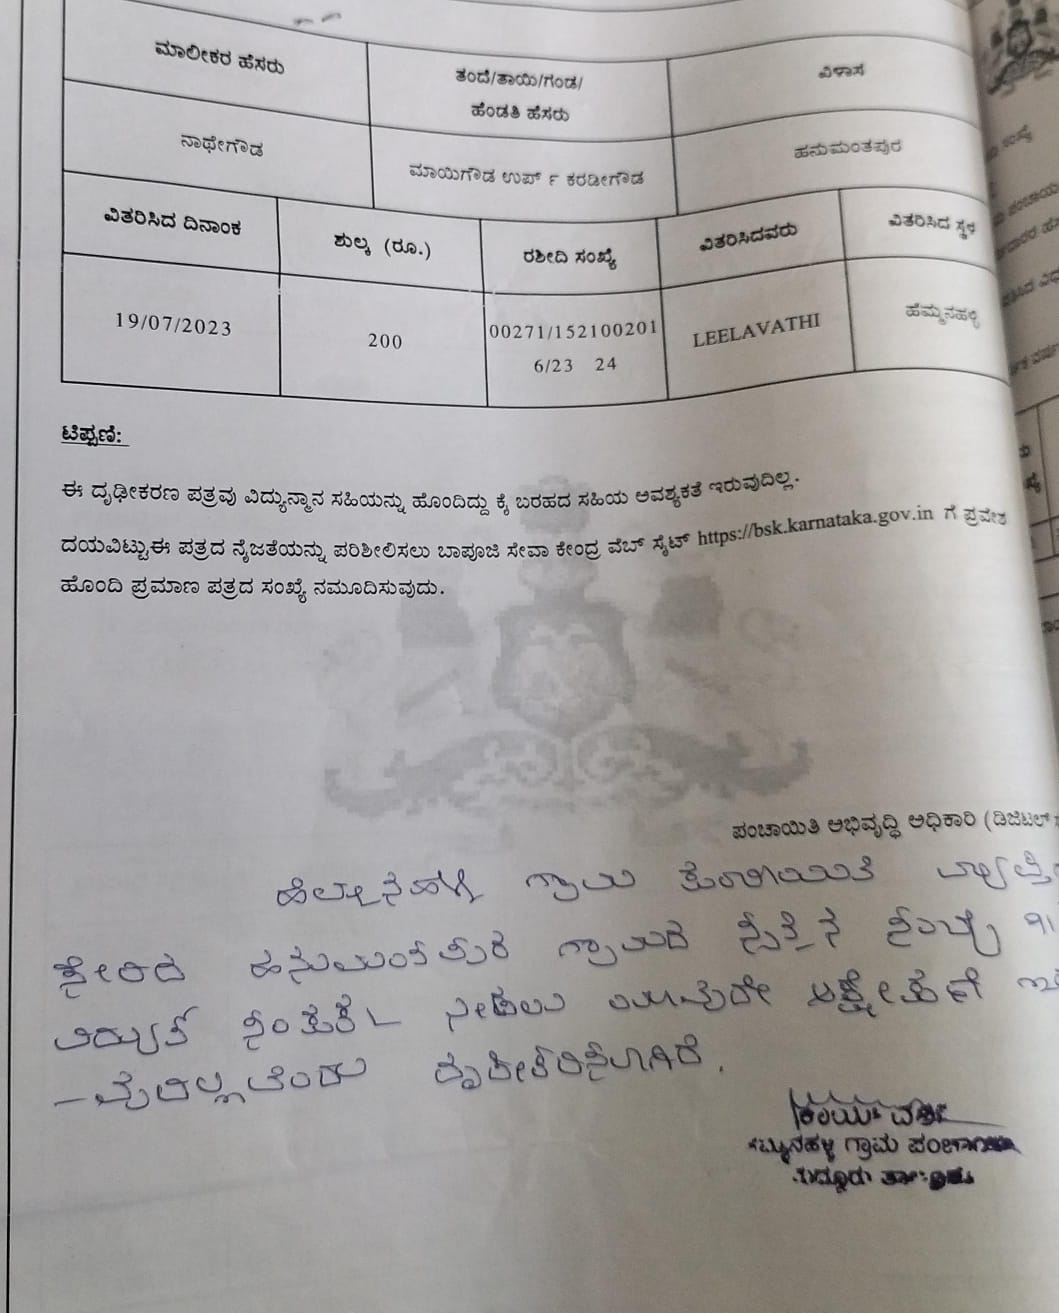 ಮಾಲೀಕರ ಹೆಸರು
ತಂದೆ/ತಾಯಿ/ಗಂಡ/
ಹೆಂಡತಿ ಹೆಸರು
ವಿಳಾಸ
ನಾಥೇಗೌಡ
ಮಾಯಿಗೌಡ ಉರ್ಪ್ ಕರಡೀಗೌಡ
ಹನುಮಂತಪುರ
ವಿತರಿಸಿದ ದಿನಾಂಕ
ಶುಲ್ಕ (ರೂ.)
ರಶೀದಿ ಸಂಖ್ಯೆ
ವಿತರಿಸಿದವರು
ವಿತರಿಸಿದ ಸ್ಥಳ
19/07/2023
200
00271/152100201
6/23 24
LEELAVATHI
ಹೆಮ್ಮನಹಳ್ಳಿ
ಟಿಪ್ಪಣಿ:
ಈ ದೃಢೀಕರಣ ಪತ್ರವು ವಿದ್ಯುನ್ಮಾನ ಸಹಿಯನ್ನು ಹೊಂದಿದ್ದು ಕೈ ಬರಹದ ಸಹಿಯ ಅವಶ್ಯಕತೆ ಇರುವುದಿಲ್ಲ.
ದಯವಿಟ್ಟುಈ ಪತ್ರದ ನೈಜತೆಯನ್ನು ಪರಿಶೀಲಿಸಲು ಬಾಪೂಜಿ ಸೇವಾ ಕೇಂದ್ರ ವೆಬ್ ಸೈಟ್ https://bsk.karnataka.gov.in ಗೆ ಪ್ರವೇಶ
ಹೊಂದಿ ಪ್ರಮಾಣ ಪತ್ರದ ಸಂಖ್ಯೆ ನಮೂದಿಸುವುದು.
ಪಂಚಾಯಿತಿ ಅಭಿವೃದ್ಧಿ ಅಧಿಕಾರಿ (ಡಿಜಿಟಲ್
ಗ್ರಾಮ
ಸೇರಿದ ಹನುಮಂತಪುರ ಗ್ರಾಮದ
ವಿದ್ಯುತ್ ಸಂಪರ್ಕ ನೀಡಲು ಯಾವುದೇ ಆಕ್ಷೇಪಣೆ
ದೃಢೀಕರಿಸಲಾಗಿದೆ.
ಗ್ರಾಮ ಪಂಚಾಯಿತಿ